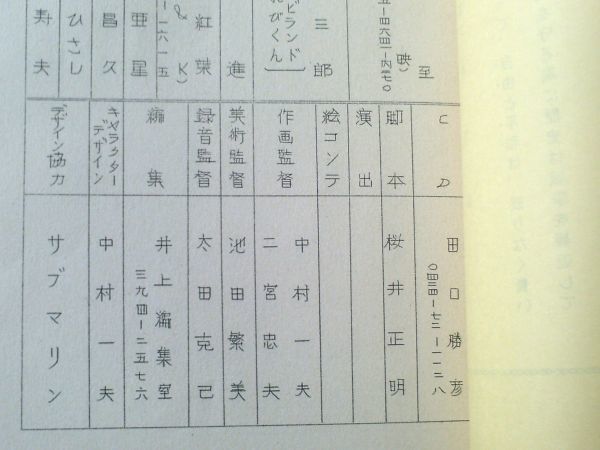 至
映)
三郎
ビランド
びくん
進
紅葉
& K)
一六一五
亜星
昌久
ひさし
寿夫
CD
脚本
演出
絵コンテ
作画監督
美術監督
録音監督
編集
キャラクター
デザイン
デザイン協力
田口勝彦
〇四三四ー七二ー一一二八
桜井正明
中村一夫
二宮忠夫
池田繁美
太田克己
井上編集室
三九四ー二五七六
中村一夫
サブマリン